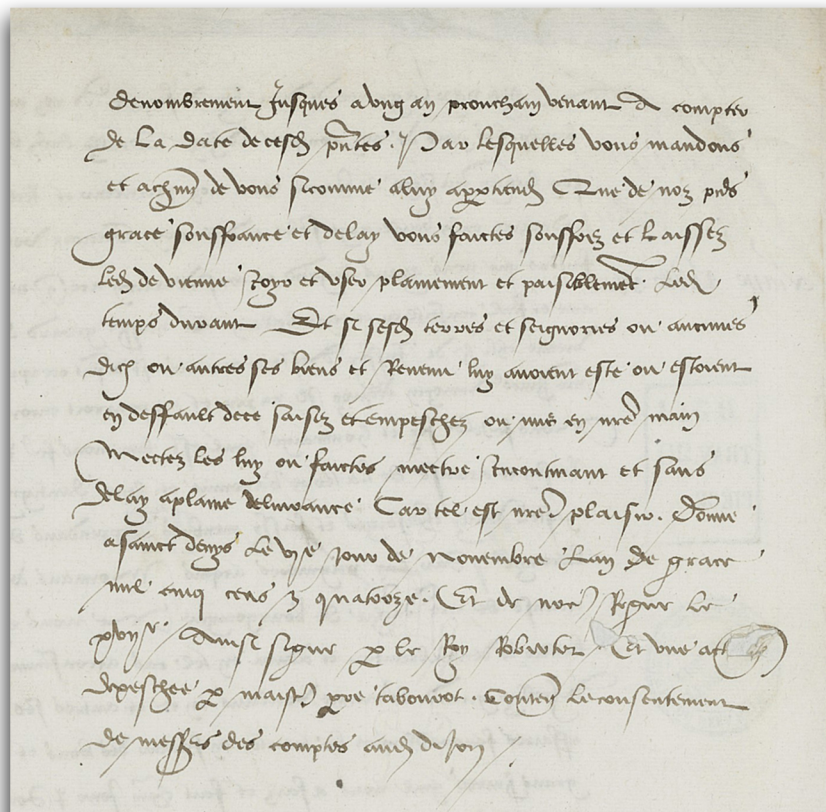 denombrement Jusques a ung an prouchain venant A compter
de La date de cesd pntes . Par lesquelles vous mandons
et a chun de vous sicomme a luy appartiendra Que de noz pns
grace souffrance et delay vous faictes souffrez et Laissez
led de vienne Joyr et user plainement et paisiblement . Led
temps durant Et se sesd terres et seignories ou aucunes
dicell ou autres ses biens et Revenu luy avoient este ou estoient
en deffault de ce saisez et empeschez ou mis en nre main
Mectez les luy ou faictes mectre Incontinant et sans
delay a plaine delivrance Car tel est nre plaisir . Donne
a sainct denys Le vje jour de Novembre Lan de grace
mil cinq cens & quatorze . Et de nore Regne le
xvije . Ainsi signe p le Roy Robertet Et une act
depeschee p maistre tabourot . Conten le consentement
de messrs des comptes aud dijon